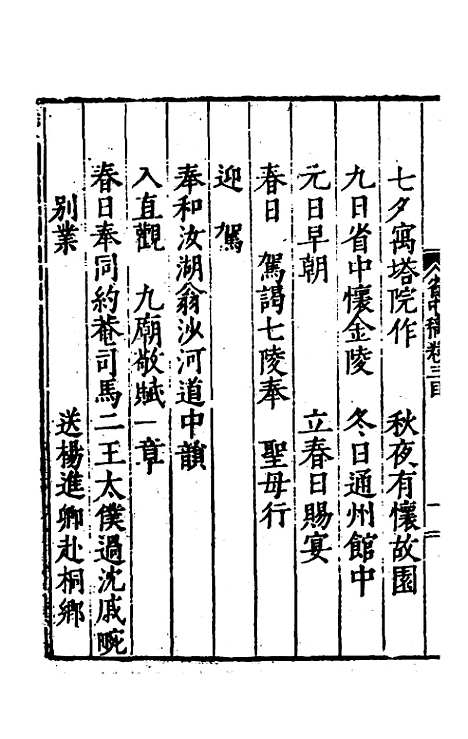 省中稿卷三目
二
七夕寓塔院作　秋夜有懷故園
九日省中懷金陵　冬日通州館中
元日早朝　立春日賜宴
春日　駕謁七陵奉　聖母行
迎　駕
奉和汝湖翁沙河道中韻
入直觀　九廟敬賦一章
春日奉同約菴司馬二王太僕過沈戚畹
別業　送楊進卿赴桐鄉